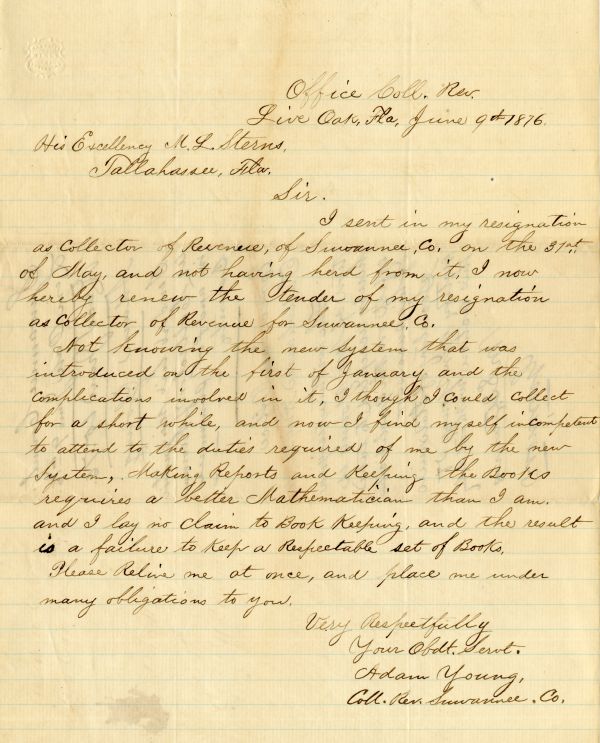 Office Coll. Rev.
Live Oak, Fla, June 9th 1876.
His Excellency M. L. Sterns,
Tallahassee, Fla.
Sir.
I sent in my resignation
as Collector of Revenue, of Suwannee, Co. on the 31st.
of May, and not having herd from it, I now
hereby renew the tender of my resignation
as Collector of Revenue for Suwannee, Co.
Not knowing the new system that was
introduced on the first of January and the
complications involved in it, I though I could collect
for a short while, and now I find myself incompetent
to attend to the duties required of me by the new
System, Making Reports and Keeping the Books
requires a better Mathematician than I am.
and I lay no claim to Book Keeping, and the result
is a failure to Keep a Respectable set of Books,
Please Relive me at once, and place me under
many obligations to you.
Very Respectfully
Your Obdt. Servt.
Adam Young,
Coll. Rev. Suwannee. Co.